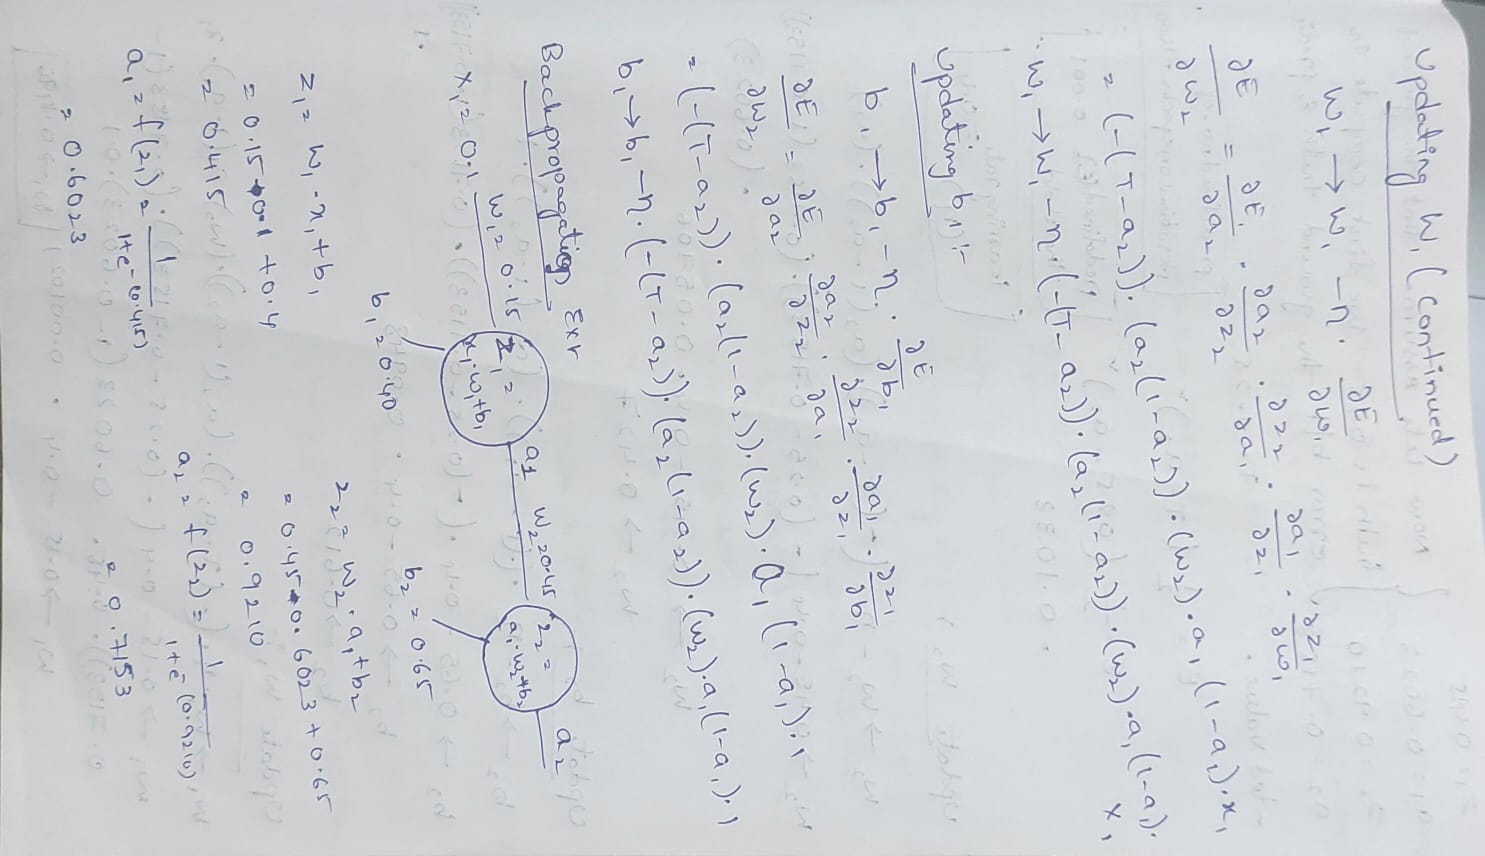 Updating W₁ (continued)
w₁ → w₁ - η · ∂E/∂w₁
∂E/∂w₂ = ∂E/∂a₂ · ∂a₂/∂z₂ · ∂z₂/∂a₁ · ∂a₁/∂z₁ · ∂z₁/∂w₁
= (-(T-a₂)) · (a₂(1-a₂)) · (w₂) · a₁ (1-a₁) · x₁
w₁ → w₁ - η · (-(T-a₂)) · (a₂(1-a₂)) · (w₂) · a₁(1-a₁) ·
x₁
Updating b₁ :-
b₁ → b₁ - η · ∂E/∂b₁
∂E/∂w₂ = ∂E/∂a₂ · ∂a₂/∂z₂ · ∂z₂/∂a₁ · ∂a₁/∂z₁ · ∂z₁/∂b₁
= (-(T-a₂)) · (a₂(1-a₂)) · (w₂) · a₁ (1-a₁) · 1
b₁ → b₁ - η · (-(T-a₂)) · (a₂(1-a₂)) · (w₂) · a₁(1-a₁) · 1
Backpropagation Exr
x₁ = 0.1 w₁ = 0.15
z₁ =
x₁·w₁+b₁
a₁ w₂=0.45
z₂ =
a₁·w₂+b₂
a₂
b₁ = 0.40
b₂ = 0.65
z₁ = w₁ · x₁ + b₁
= 0.15 * 0.1 + 0.4
= 0.415
a₁ = f(z₁) = 1/1+e^-(0.415)
= 0.6023
z₂ = w₂ · a₁ + b₂
= 0.45 * 0.6023 + 0.65
= 0.9210
a₂ = f(z₂) = 1/1+e^-(0.9210)
= 0.7153